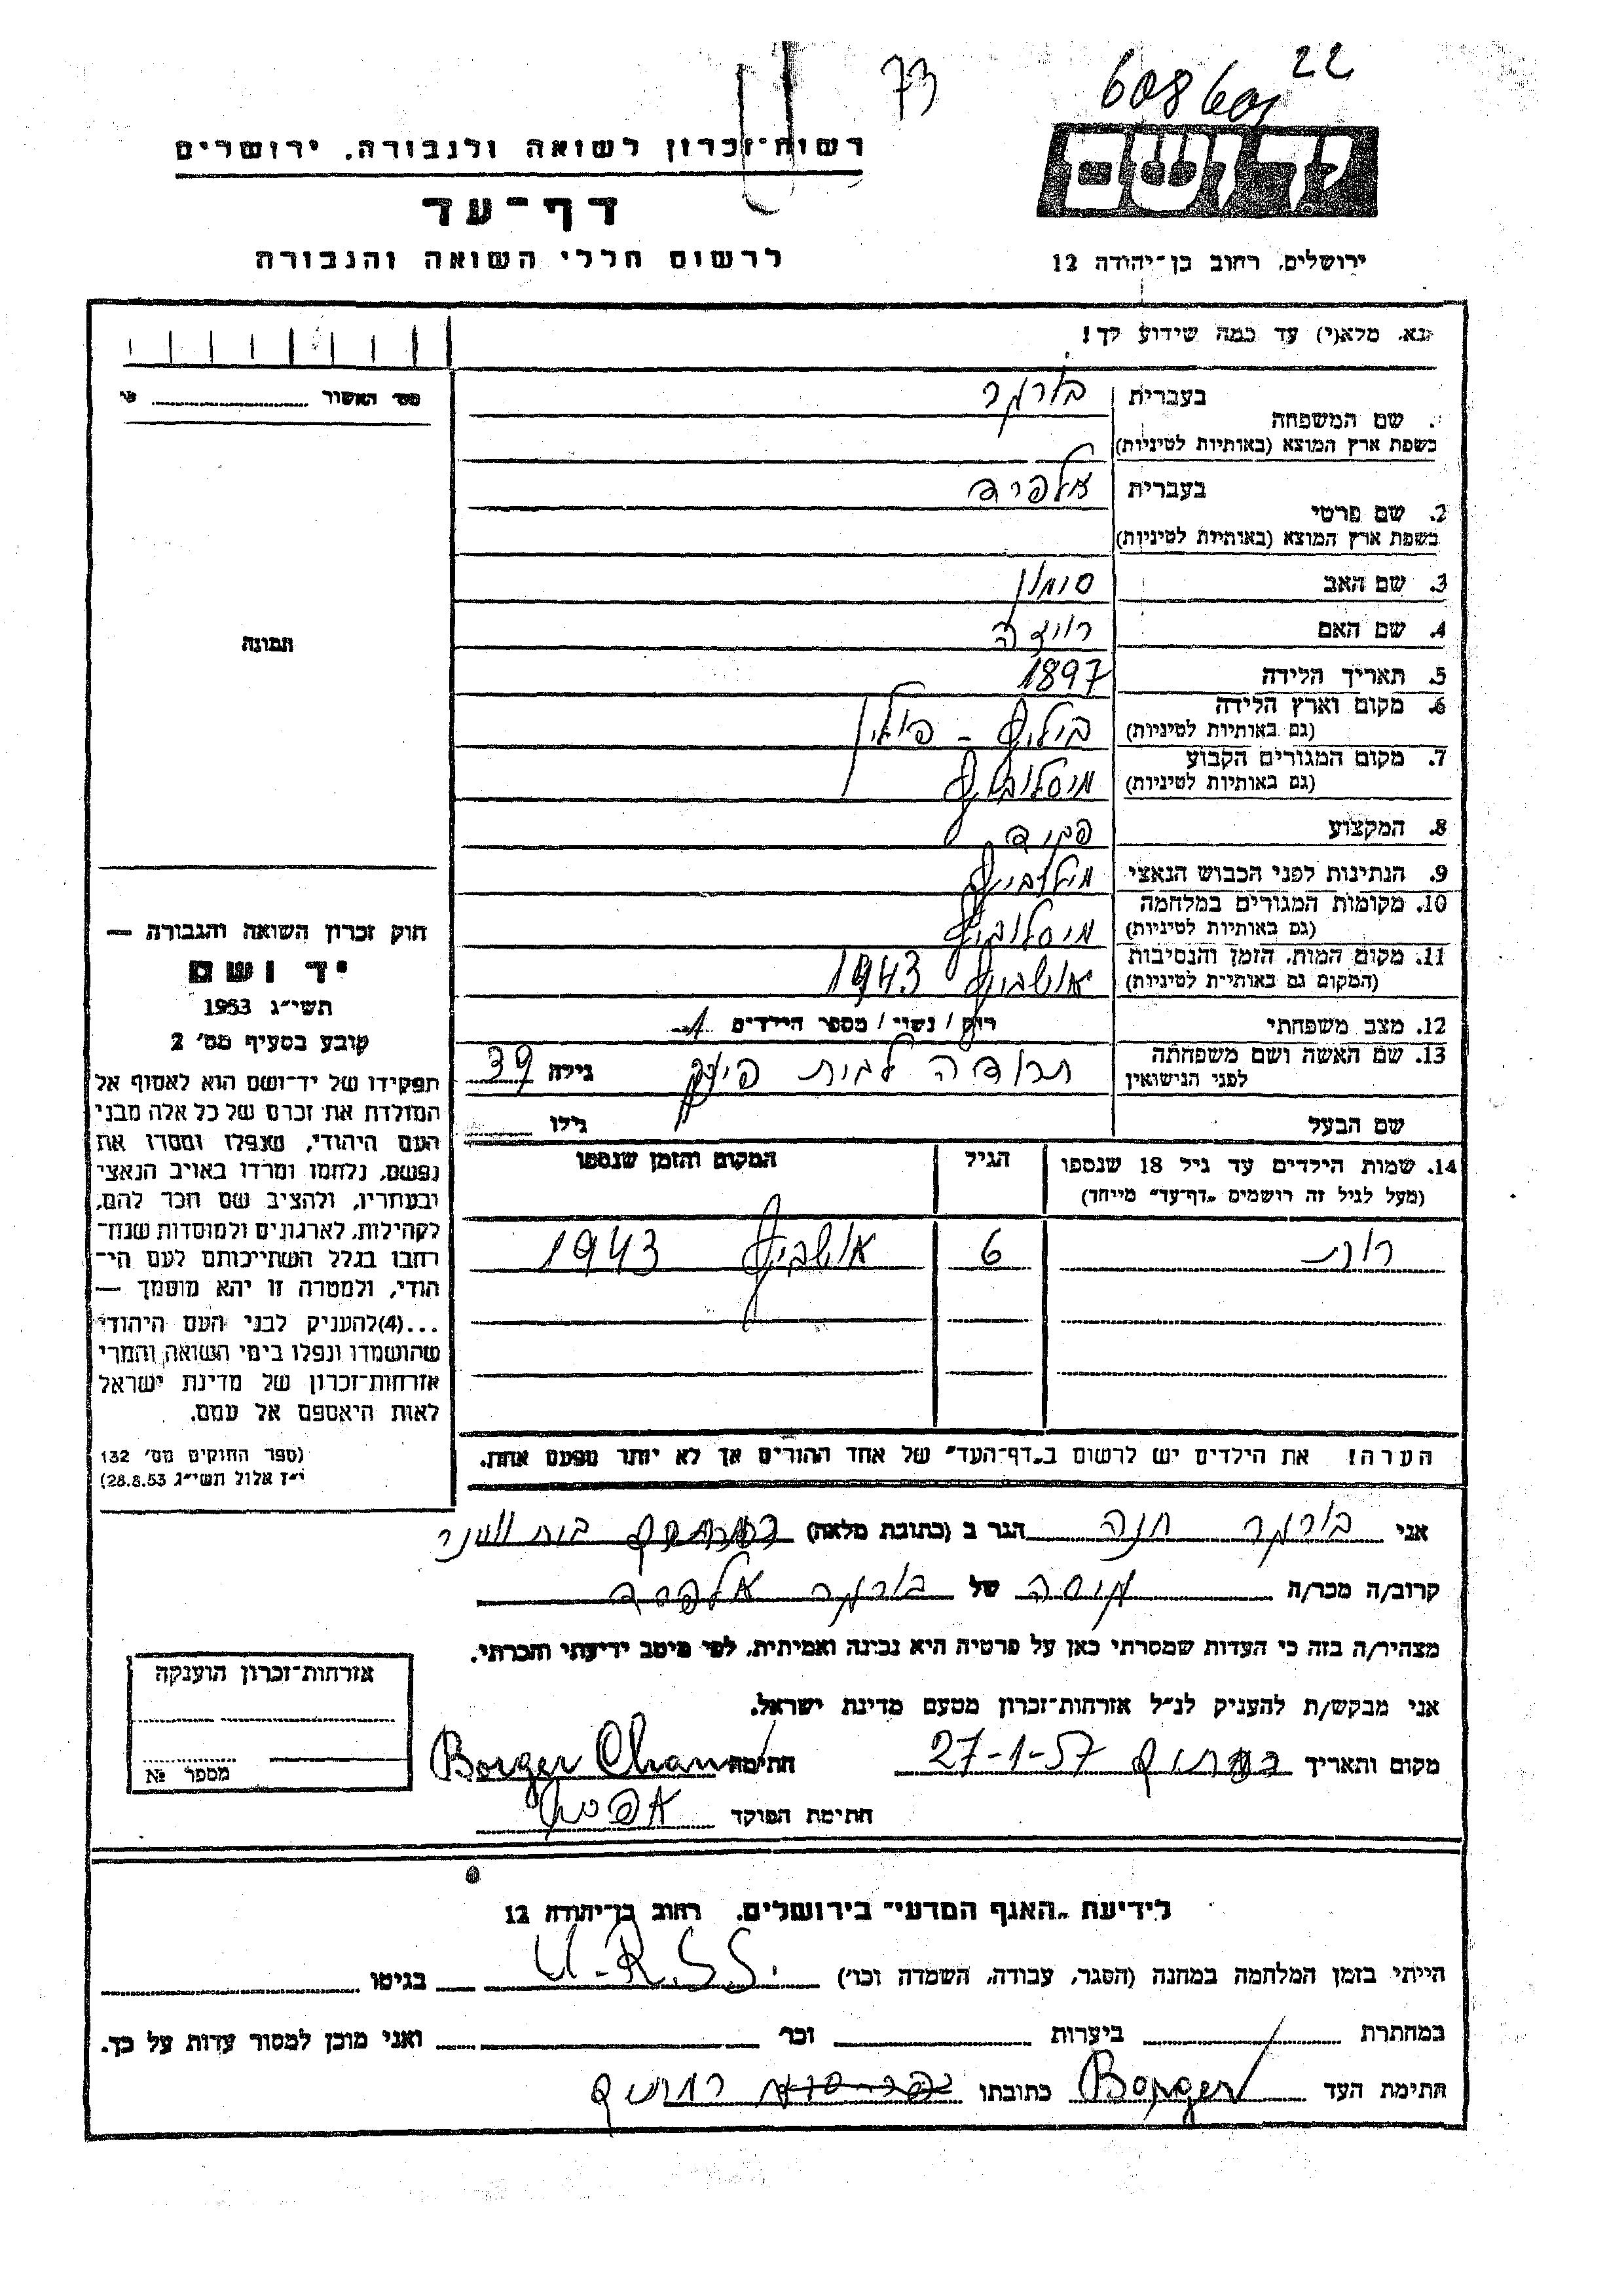 22
73
608601
רשות־זכרון לשואה ולגבורה, ירושלים
יד ושם
דף־עד
לרשום חללי השואה והגבורה
ירושלים, רחוב בן־יהודה 12
נא, מלא(י) עד כמה שידוע לך!
מס׳ האשור
שם המשפחה
בעברית בורגר
בשפת ארץ המוצא (באותיות לטיניות)
2. שם פרטי
בעברית אלפרד
בשפת ארץ המוצא (באותיות לטיניות)
3. שם האב סימון
4. שם האם רוזה
5. תאריך הלידה 1897
6. מקום וארץ הלידה
(גם באותיות לטיניות) בילץ - פולין
7. מקום המגורים הקבוע
(גם באותיות לטיניות) מיסלוביץ
8. המקצוע פקיד
9. הנתינות לפני הכבוש הנאצי
10. מקומות המגורים במלחמה
(גם באותיות לטיניות) מיסלוביץ
11. מקום המות, הזמן והנסיבות
(המקום גם באותיות לטיניות) אושביץ 1943
12. מצב משפחתי רוק / נשוי / מספר הילדים 1
13. שם האשה ושם משפחתה
לפני הנישואין לבית גילה 39
שם הבעל גילו
תמונה
חוק זכרון השואה והגבורה —
יד ושם
תשי״ג 1953
קובע בסעיף מס׳ 2
תפקידו של יד־ושם הוא לאסוף אל
המולדת את זכרם של כל אלה מבני
העם היהודי, שנפלו ומסרו את
נפשם, נלחמו ומרדו באויב הנאצי
ובעוזריו, ולהציב שם וזכר להם,
לקהילות, לארגונים ולמוסדות שנח־
רבו בגלל השתייכותם לעם הי־
הודי, ולמטרה זו יהא מוסמך —
...(4)להעניק לבני העם היהודי
שהושמדו ונפלו בימי השואה והמרי
אזרחות־זכרון של מדינת ישראל
לאות היאספם אל עמם.
(ספר החוקים מס׳ 132
י״ז אלול תשי״ג 28.8.53)
14. שמות הילדים עד גיל 18 שנספו
(מעל לגיל זה רושמים „דף־עד״ מייחד)
הגיל
המקום והזמן שנספו
רוני 6 אושביץ 1943
הערה! את הילדים יש לרשום ב„דף־העד״ של אחד ההורים אך לא יותר מפעם אחת.
אני בורגר חנה הגר ב (כתובת מלאה)
קרוב/ה מכר/ה גיסה של בורגר אלפרד
מצהיר/ה בזה כי העדות שמסרתי כאן על פרטיה היא נכונה ואמיתית, לפי מיטב ידיעתי והכרתי.
אני מבקש/ת להעניק לנ״ל אזרחות־זכרון מטעם מדינת ישראל.
מקום ותאריך 27-1-57 חתימה Borger Chana
חתימת הפוקד
אזרחות־זכרון הוענקה
מספר №
לידיעת „האגף המדעי״ בירושלים, רחוב בן־יהודה 12
הייתי בזמן המלחמה במחנה (הסגר, עבודה, השמדה וכו׳) U.R.S.S. בגיטו
במחתרת ביערות וכו׳ ואני מוכן למסור עדות על כך.
חתימת העד Borger כתובתו